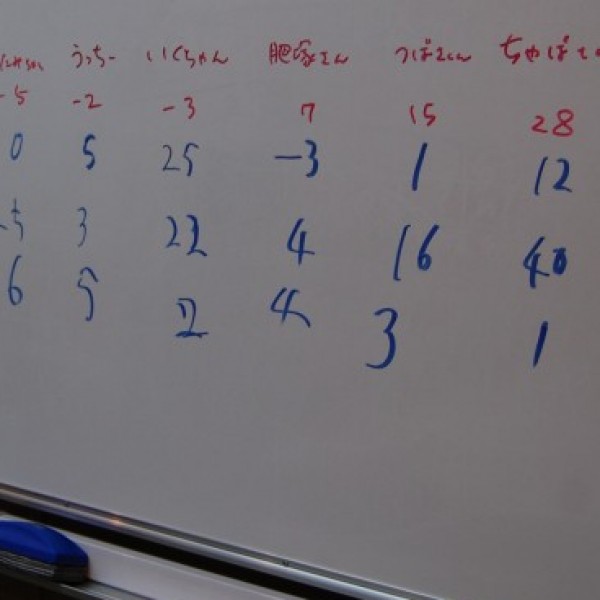 うっちー いくちゃん 肥塚さん つぼさん ちゃぼ
-5 -2 -3 7 15 28
0 5 25 -3 1 12
-5 3 22 4 16 40
6 5 2 4 3 1